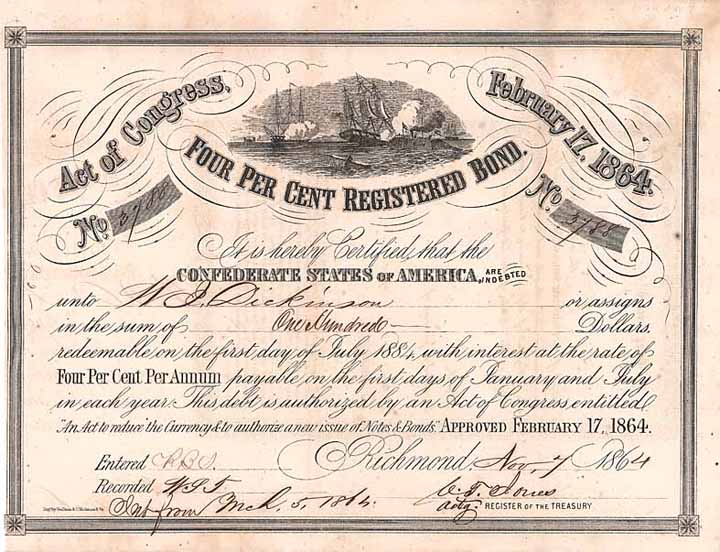 Act of Congress, February 17, 1864.
FOUR PER CENT REGISTERED BOND.
No. 3788 No. 3788
It is hereby Certified, that the
CONFEDERATE STATES OF AMERICA, ARE INDEBTED
unto W. J. Dickinson or assigns
in the sum of One Hundred Dollars.
redeemable on the first day of July 1884, with interest at the rate of
Four Per Cent Per Annum payable on the first days of January and July
in each year. This debt is authorized by an Act of Congress entitled
"An Act to reduce the Currency & to authorize a new issue of Notes & Bonds." APPROVED FEBRUARY 17, 1864.
Entered Richmond, Nov. 7 1864
Recorded
Int from Mch. 5, 1864. REGISTER OF THE TREASURY